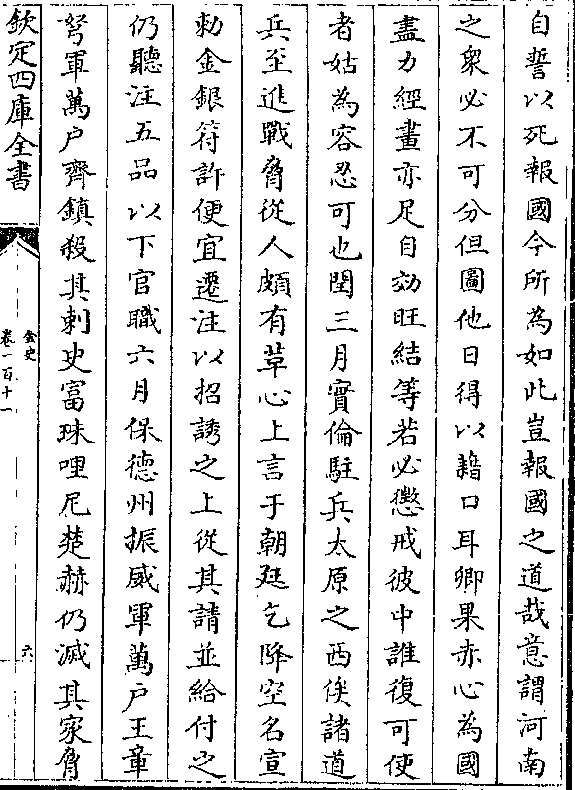 自誓以死報國今所為如此豈報國之道哉意謂河南
之衆必不可分但圖他日得以藉口耳卿果赤心為國
盡力經畫亦足自効旺結等若必懲戒彼中誰復可使
者姑為容忍可也閏三月實倫駐兵太原之西俟諸道
兵至進戰脅從人頗有革心上言于朝廷乞降空名宣
勅金銀符許便宜遷注以招誘之上從其請並給付之
仍聽注五品以下官職六月保德州振威軍萬户王章
弩軍萬户齊鎮殺其刺史富珠哩尼楚赫仍滅其家脅
欽定四庫全書
金史
卷一百十一
六